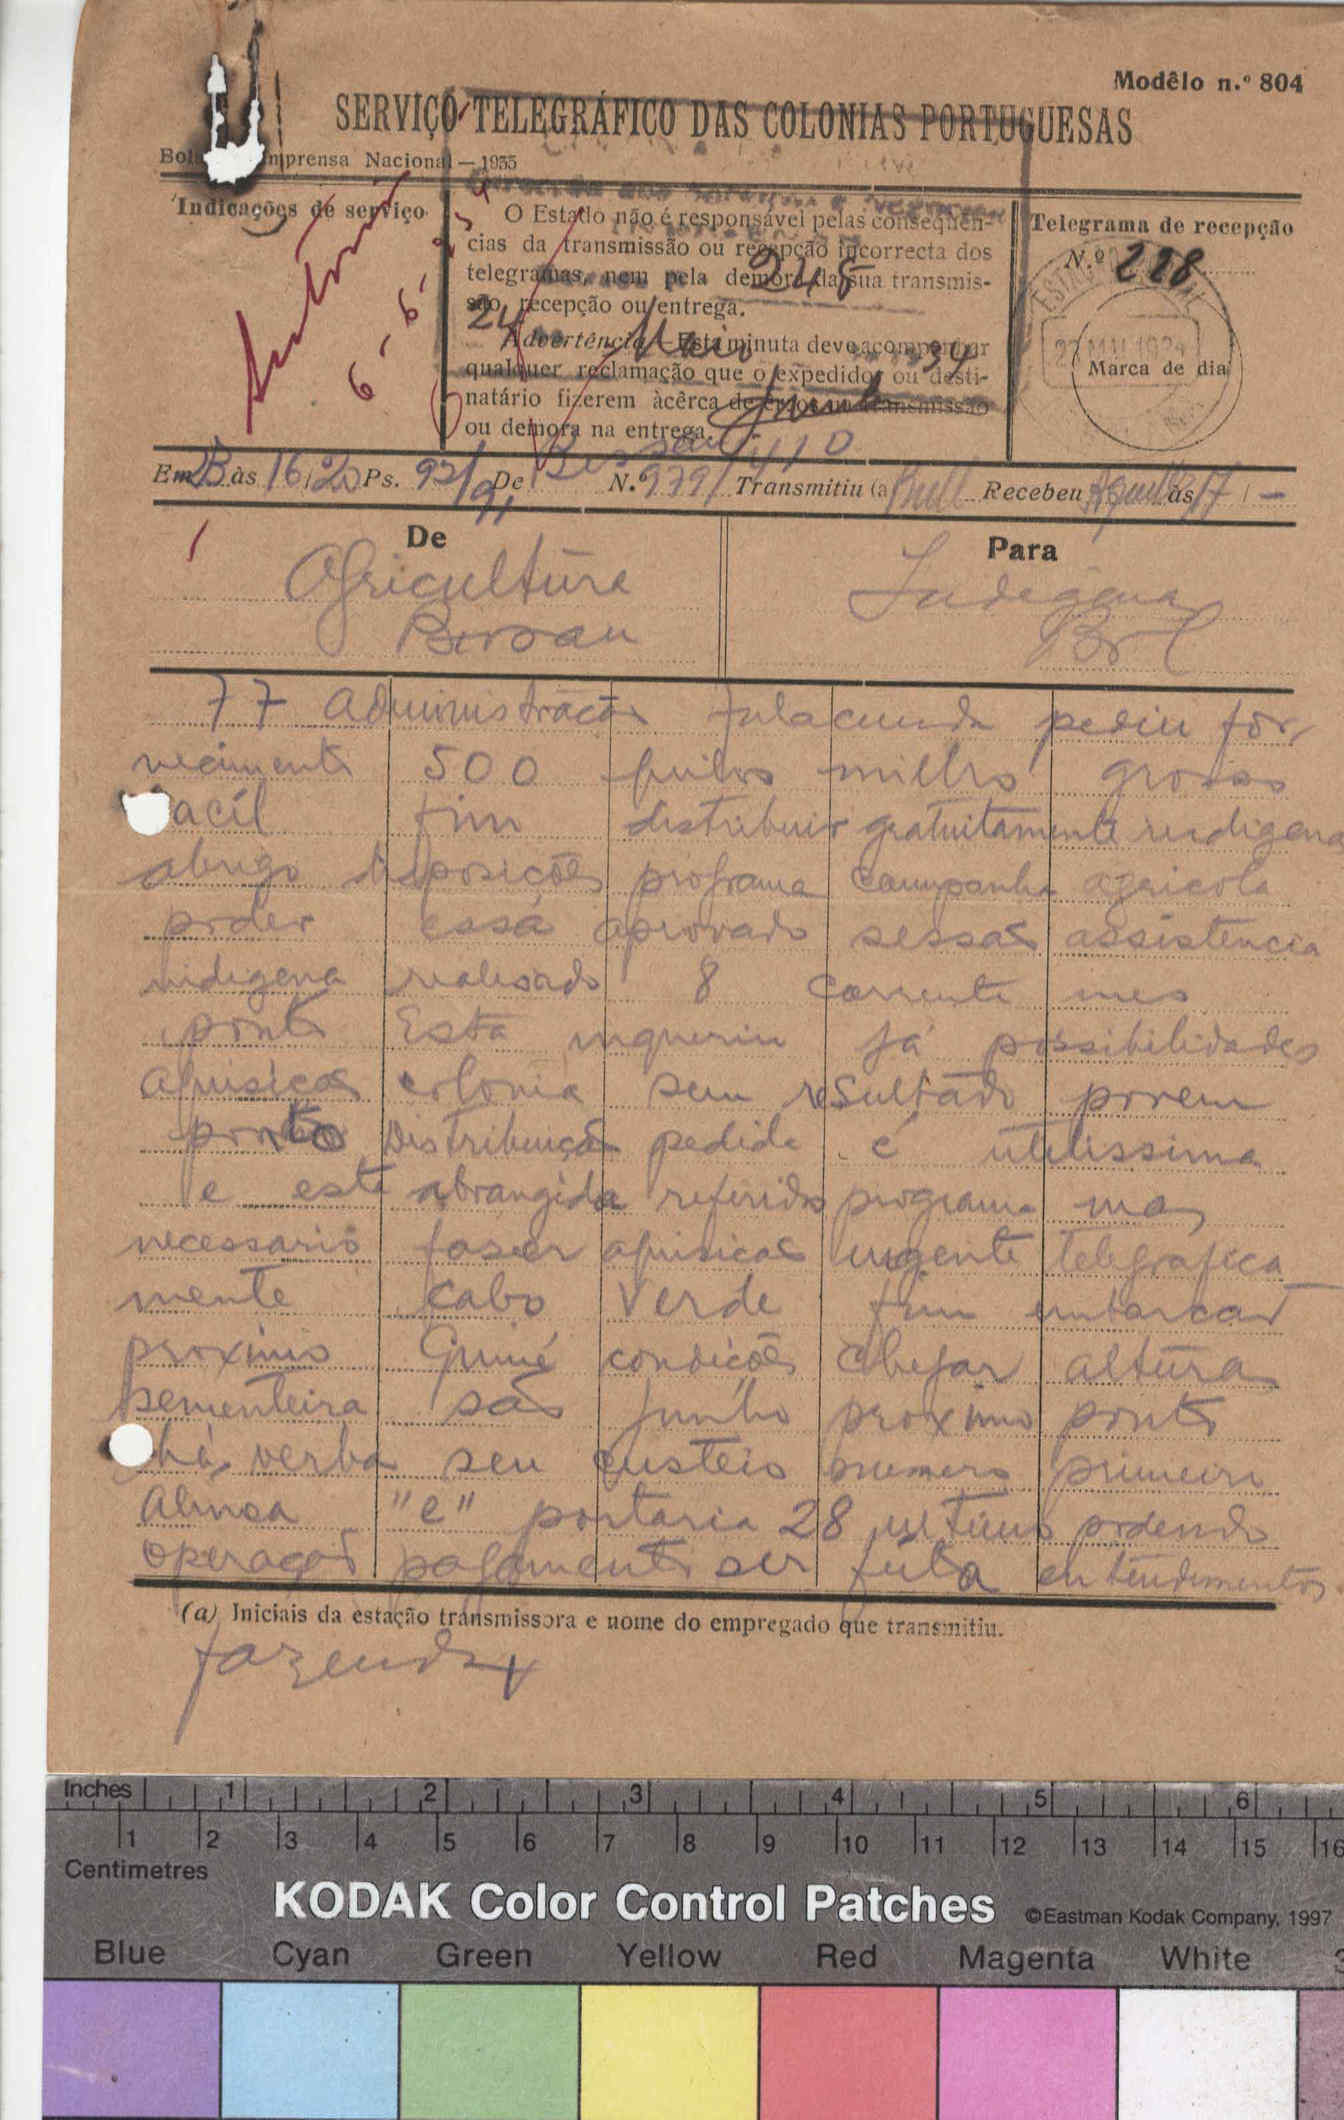 Modêlo n.º 804
SERVIÇO TELEGRÁFICO DAS COLONIAS PORTUGUESAS
Imprensa Nacional — 1935
Indicações de serviço
O Estado não é responsável pelas conseqüên-
cias da transmissão ou recepção incorrecta dos
telegramas, nem pela demora da sua transmis-
são, recepção ou entrega.
Advertência — Esta minuta deve acompanhar
qualquer reclamação que o expedidor ou desti-
natário fizerem àcêrca de erros na transmissão
ou demora na entrega.
248
24
Maio
34
Telegrama de recepção
N.º 218
Marca de dia
6-6-934
Em 23 às 16/20 Ps. 92/91 De Bissau N.º 979/410 Transmitiu (a) Recebeu às 17/-
De
Agricultura
Bissau
Para
Indegena
Bol
77 Administração Fulacunda pediu for
necimento 500 quilos milho grosso
acil fim distribuir gratuitamente indigena
abrigo disposições programa campanha agricola
poder essa aprovado sessão assistencia
indigena realisado 8 corrente mes
ponto Esta inqueriu já possibilidades
aquisição colonia sem resultado porem
ponto Distribuição pedida é utilissima
e esta abrangida referido programa mas
necessario faser aquisicão urgente telegrafica
mente cabo verde fim embarcar
proximo Guiné condições chegar altura
sementeira são Junho proximo ponto
há verba seu custeio numero primeiro
alinea "e" portaria 28 ultimo podendo
operação pagamento ser feita entendimentos
(a) Iniciais da estação transmissora e nome do empregado que transmitiu.
fazenda +
Inches 1 2 3 4 5 6
1 2 3 4 5 6 7 8 9 10 11 12 13 14 15 16
Centimetres
KODAK Color Control Patches ©Eastman Kodak Company, 1997
Blue Cyan Green Yellow Red Magenta White